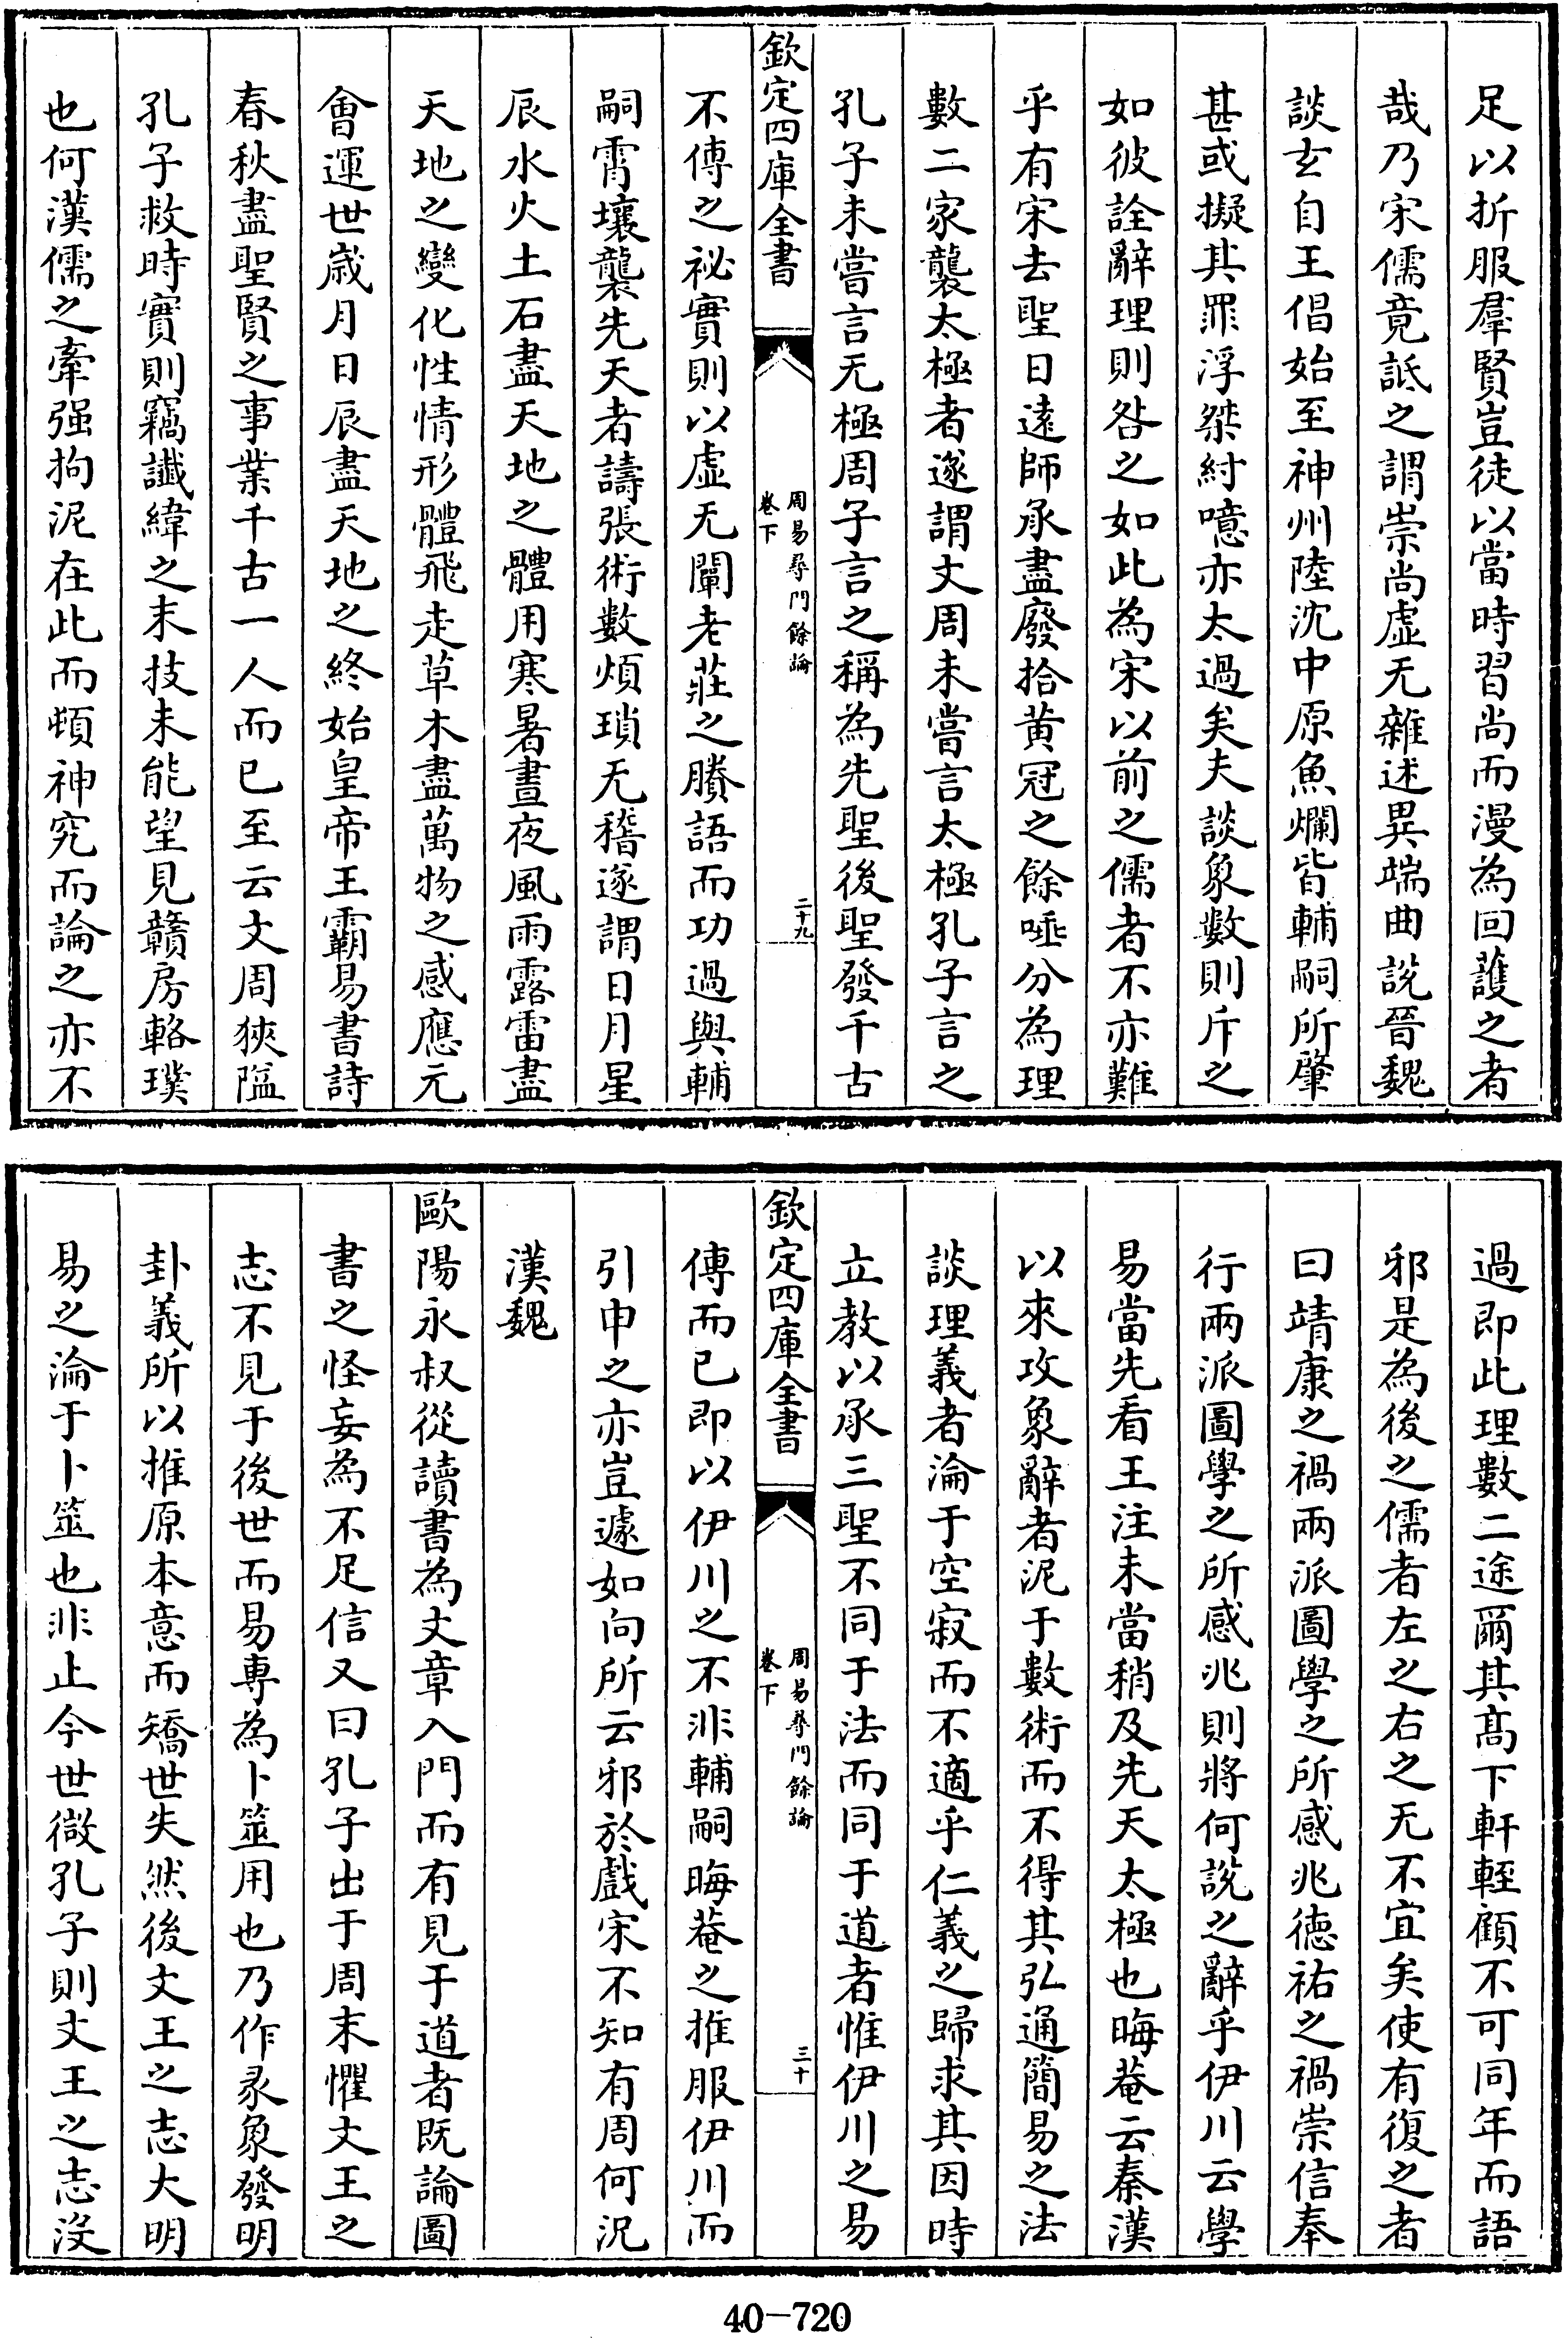 足以折服羣賢豈徒以當時習尚而漫為回護之者
哉乃宋儒竟詆之謂崇尚虛无雜述異端曲說晉魏
談玄自王倡始至神州陸沈中原魚爛皆輔嗣所肇
甚或擬其罪浮桀紂噫亦太過矣夫談象數則斥之
如彼詮辭理則咎之如此為宋以前之儒者不亦難
乎有宋去聖日遠師承盡廢拾黃冠之餘唾分為理
數二家襲太極者遂謂文周未嘗言太極孔子言之
孔子未嘗言无極周子言之稱為先聖後聖發千古
欽定四庫全書
周易尋門餘論
卷下
二十九
不傳之祕實則以虛无闡老莊之賸語而功過與輔
嗣霄壤襲先天者譸張術數煩瑣无稽遂謂日月星
辰水火土石盡天地之體用寒暑晝夜風雨露雷盡
天地之變化性情形體飛走草木盡萬物之感應元
會運世歲月日辰盡天地之終始皇帝王霸易書詩
春秋盡聖賢之事業千古一人而已至云文周狹隘
孔子救時實則竊讖緯之末技未能望見贛房輅璞
也何漢儒之牽强拘泥在此而頓神究而論之亦不
過即此理數二途爾其髙下軒輊顧不可同年而語
邪是為後之儒者左之右之无不宜矣使有復之者
曰靖康之禍兩派圖學之所感兆德祐之禍崇信奉
行兩派圖學之所感兆則將何說之辭乎伊川云學
易當先看王注未當稍及先天太極也晦菴云秦漢
以來攻象辭者泥于數術而不得其弘通簡易之法
談理義者淪于空寂而不適乎仁義之歸求其因時
立教以承三聖不同于法而同于道者惟伊川之易
欽定四庫全書
周易尋門餘論
卷下
三十
傳而已即以伊川之不非輔嗣晦菴之推服伊川而
引申之亦豈遽如向所云邪於戲宋不知有周何況
漢魏
歐陽永叔從讀書為文章入門而有見于道者既論圖
書之怪妄為不足信又曰孔子出于周末懼文王之
志不見于後世而易專為卜筮用也乃作彖象發明
卦義所以推原本意而矯世失然後文王之志大明
易之淪于卜筮也非止今世微孔子則文王之志沒
40-720